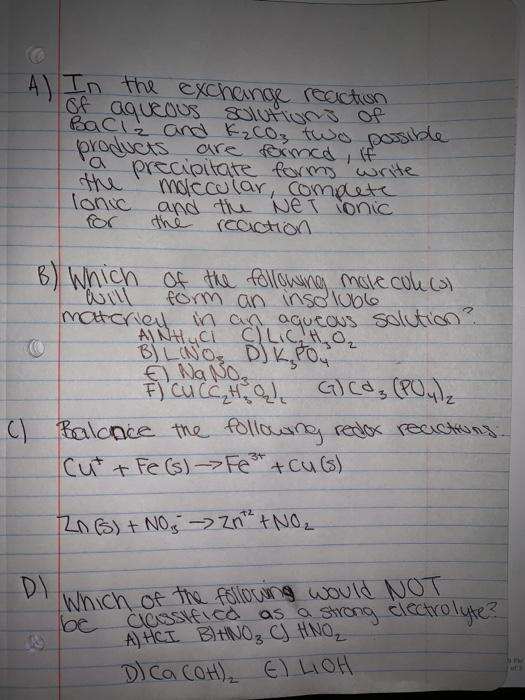 A) In the exchange reaction
of aqueous solutions of
BaCl₂ and K₂CO₃ two possible
products are formed, if
a precipitate forms write
the molecular, complete
Ionic and the NET ionic
for the reaction
B) Which of the following molecule(s)
will form an insoluble
material in an aqueous solution?
A) NH₄Cl C) LiC₂H₃O₂
B) LiNO₃ D) K₃PO₄
E) NaNO₃
F) Cu(C₂H₃O₂)₂ G) Cd₃(PO₄)₂
C) Balance the following redox reactions:
Cu⁺ + Fe(s) → Fe³⁺ + Cu(s)
Zn(s) + NO₃⁻ → Zn⁺² + NO₂
D) Which of the following would NOT
be classified as a strong electrolyte?
A) HCI B) HNO₃ C) HNO₂
D) Ca(OH)₂ E) LiOH